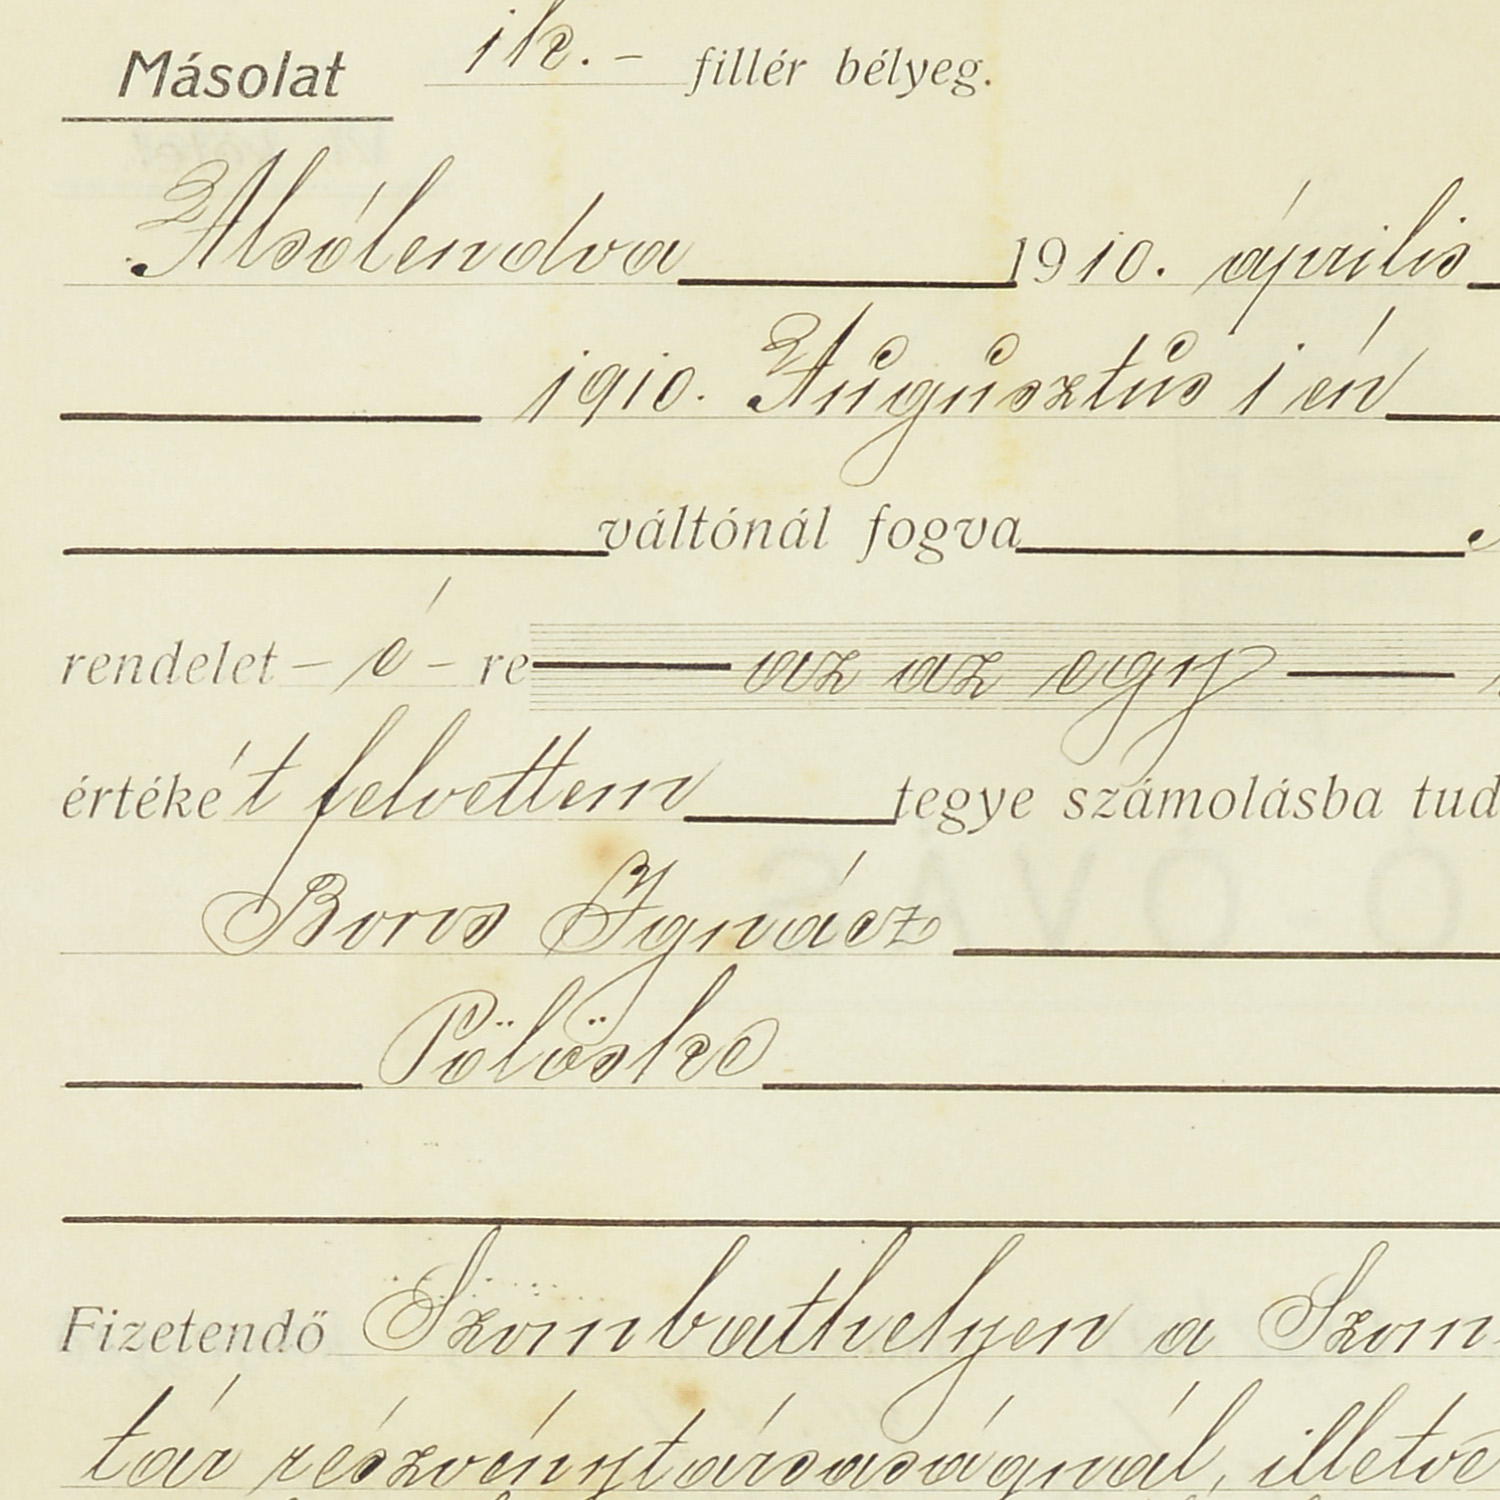 Másolat 1 k. - fillér bélyeg.
Alsólendva 1910. április
1910. Augusztus 1 én
váltónál fogva
rendelet - é - re az az egy
értékét felvettem tegye számolásba tud
Boros Ignácz
Pölöske
Fizetendő Szombathelyen a Szom
tár részvénytársaságnál, illetve